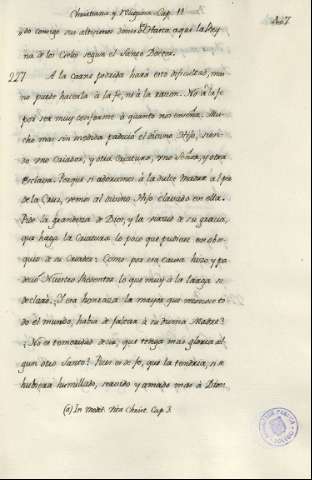 Christiana y Religiosa Cap. 11
do consejo sus altissimos dones. (a) Hasta aqui la Rey
na de los Cielos segun el Santo Doctor.
227 A la carne podrida hará esto dificultad, mas
no puede hacerla à la fe, ni à la razon. No à la fe
por ser muy conforme à quanto nos enseña. Mu-
cho mas sin medida padeció el divino Hijo, sien-
do uno Criador, y otra Criatura, uno Señor, y otra
Esclava. Porque si adoramos à la dulce Madre al pie
de la Cruz, vemos al divino Hijo clavado en ella.
Pide la grandeza de Dios, y la de su gracia,
que haga la Criatura lo poco que pudiere en obse-
quio de su Criador: Como por esa causa hizo y pa-
deció Nuestro Redentor lo que muy à la larga se
declara. I esa honraza la mayor que to
do el mundo, havia de faltar à su divina Madre?
¿No es temeridad decir, que tenga mas gloria al-
gun otro Santo? Pues es de fe, que la tendria, si se
hubiera humillado, servido y amado mas à Dios
(a) In Medit. Vita Christ. Cap. 3.